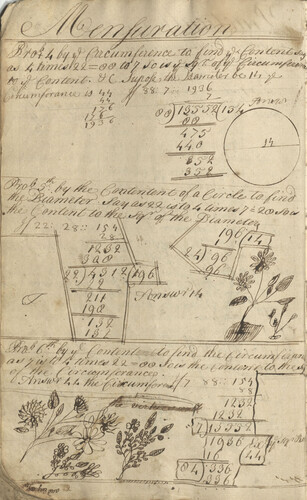 Mensuration
Prob 4 by ye Circumference to find ye Content say
as 4 times 22 = 88 to 7 so is ye Sqr of ye Circumference
to ye Content &c Supose the Diameter be 14 ye
Circumferance is 44
44
176
176
1936
If 88 : 7 :: 1936
7
88)13552(154 Answr
88
475
440
352
352
14
Prob 5th by the Contentent of a Circle to find
the Diameter Say as 22 is to 4 times 7 = 28 so is
the Content to the Sqr of the Diameter
If 22 : 28 :: 154
28
1232
308
22)4312(196
22
211
198
132
132
Answr 14
196(14
1
24)96
96
Prob 6th by ye Content to find the Circumferance
as 7 is to 4 times 22 = 88 so is the Content to the Sqr
of the Circumferance
Answr 44 the Circumfere
If 7 88 :: 154
88
1232
1232
7)13552
1936
16
84)336
336